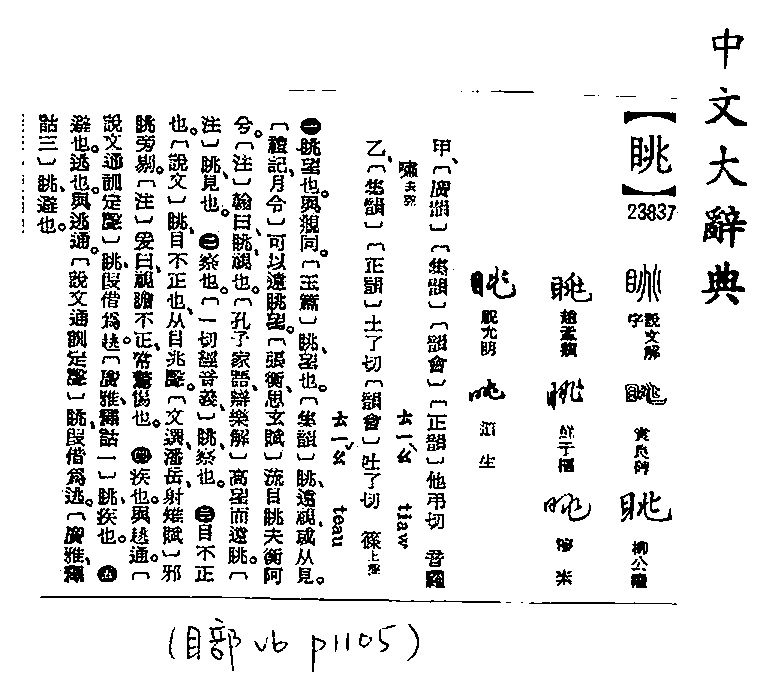 中文大辭典
【眺】
23837
說文解字
袁良碑
柳公權
趙孟頫
鮮于樞
祝允明
甲、〔廣韻〕〔集韻〕〔韻會〕〔正韻〕他弔切 音糶
嘯去聲 ㄊㄧㄠˋ tiaw
乙、〔集韻〕〔正韻〕土了切〔韻會〕吐了切 篠上聲
ㄊㄧㄠˇ teau
㊀眺望也與覜同。〔玉篇〕眺、望也。〔集韻〕眺、遠視、或从見。
〔禮記月令〕可以遠眺望。〔張衡思玄賦〕流目眺夫衡阿
兮。〔注〕翰曰、眺、視也。〔孔子家語辯樂解〕高望而遠眺。〔
注〕眺、見也。㊁察也。〔一切經音義〕眺、察也。㊂目不正
也。〔說文〕眺、目不正也、从目兆聲。〔文選潘岳射雉賦〕邪
眺旁剔。〔注〕爰曰、視瞻不正、常驚惕也。㊃疾也與趒通。〔
說文通訓定聲〕眺、叚借爲趒。〔廣雅釋詁一〕眺、疾也。㊄
避也、逃也、與逃通。〔說文通訓定聲〕眺、叚借爲逃。〔廣雅釋
詁三〕眺、避也。
(目部 v6 p1105)